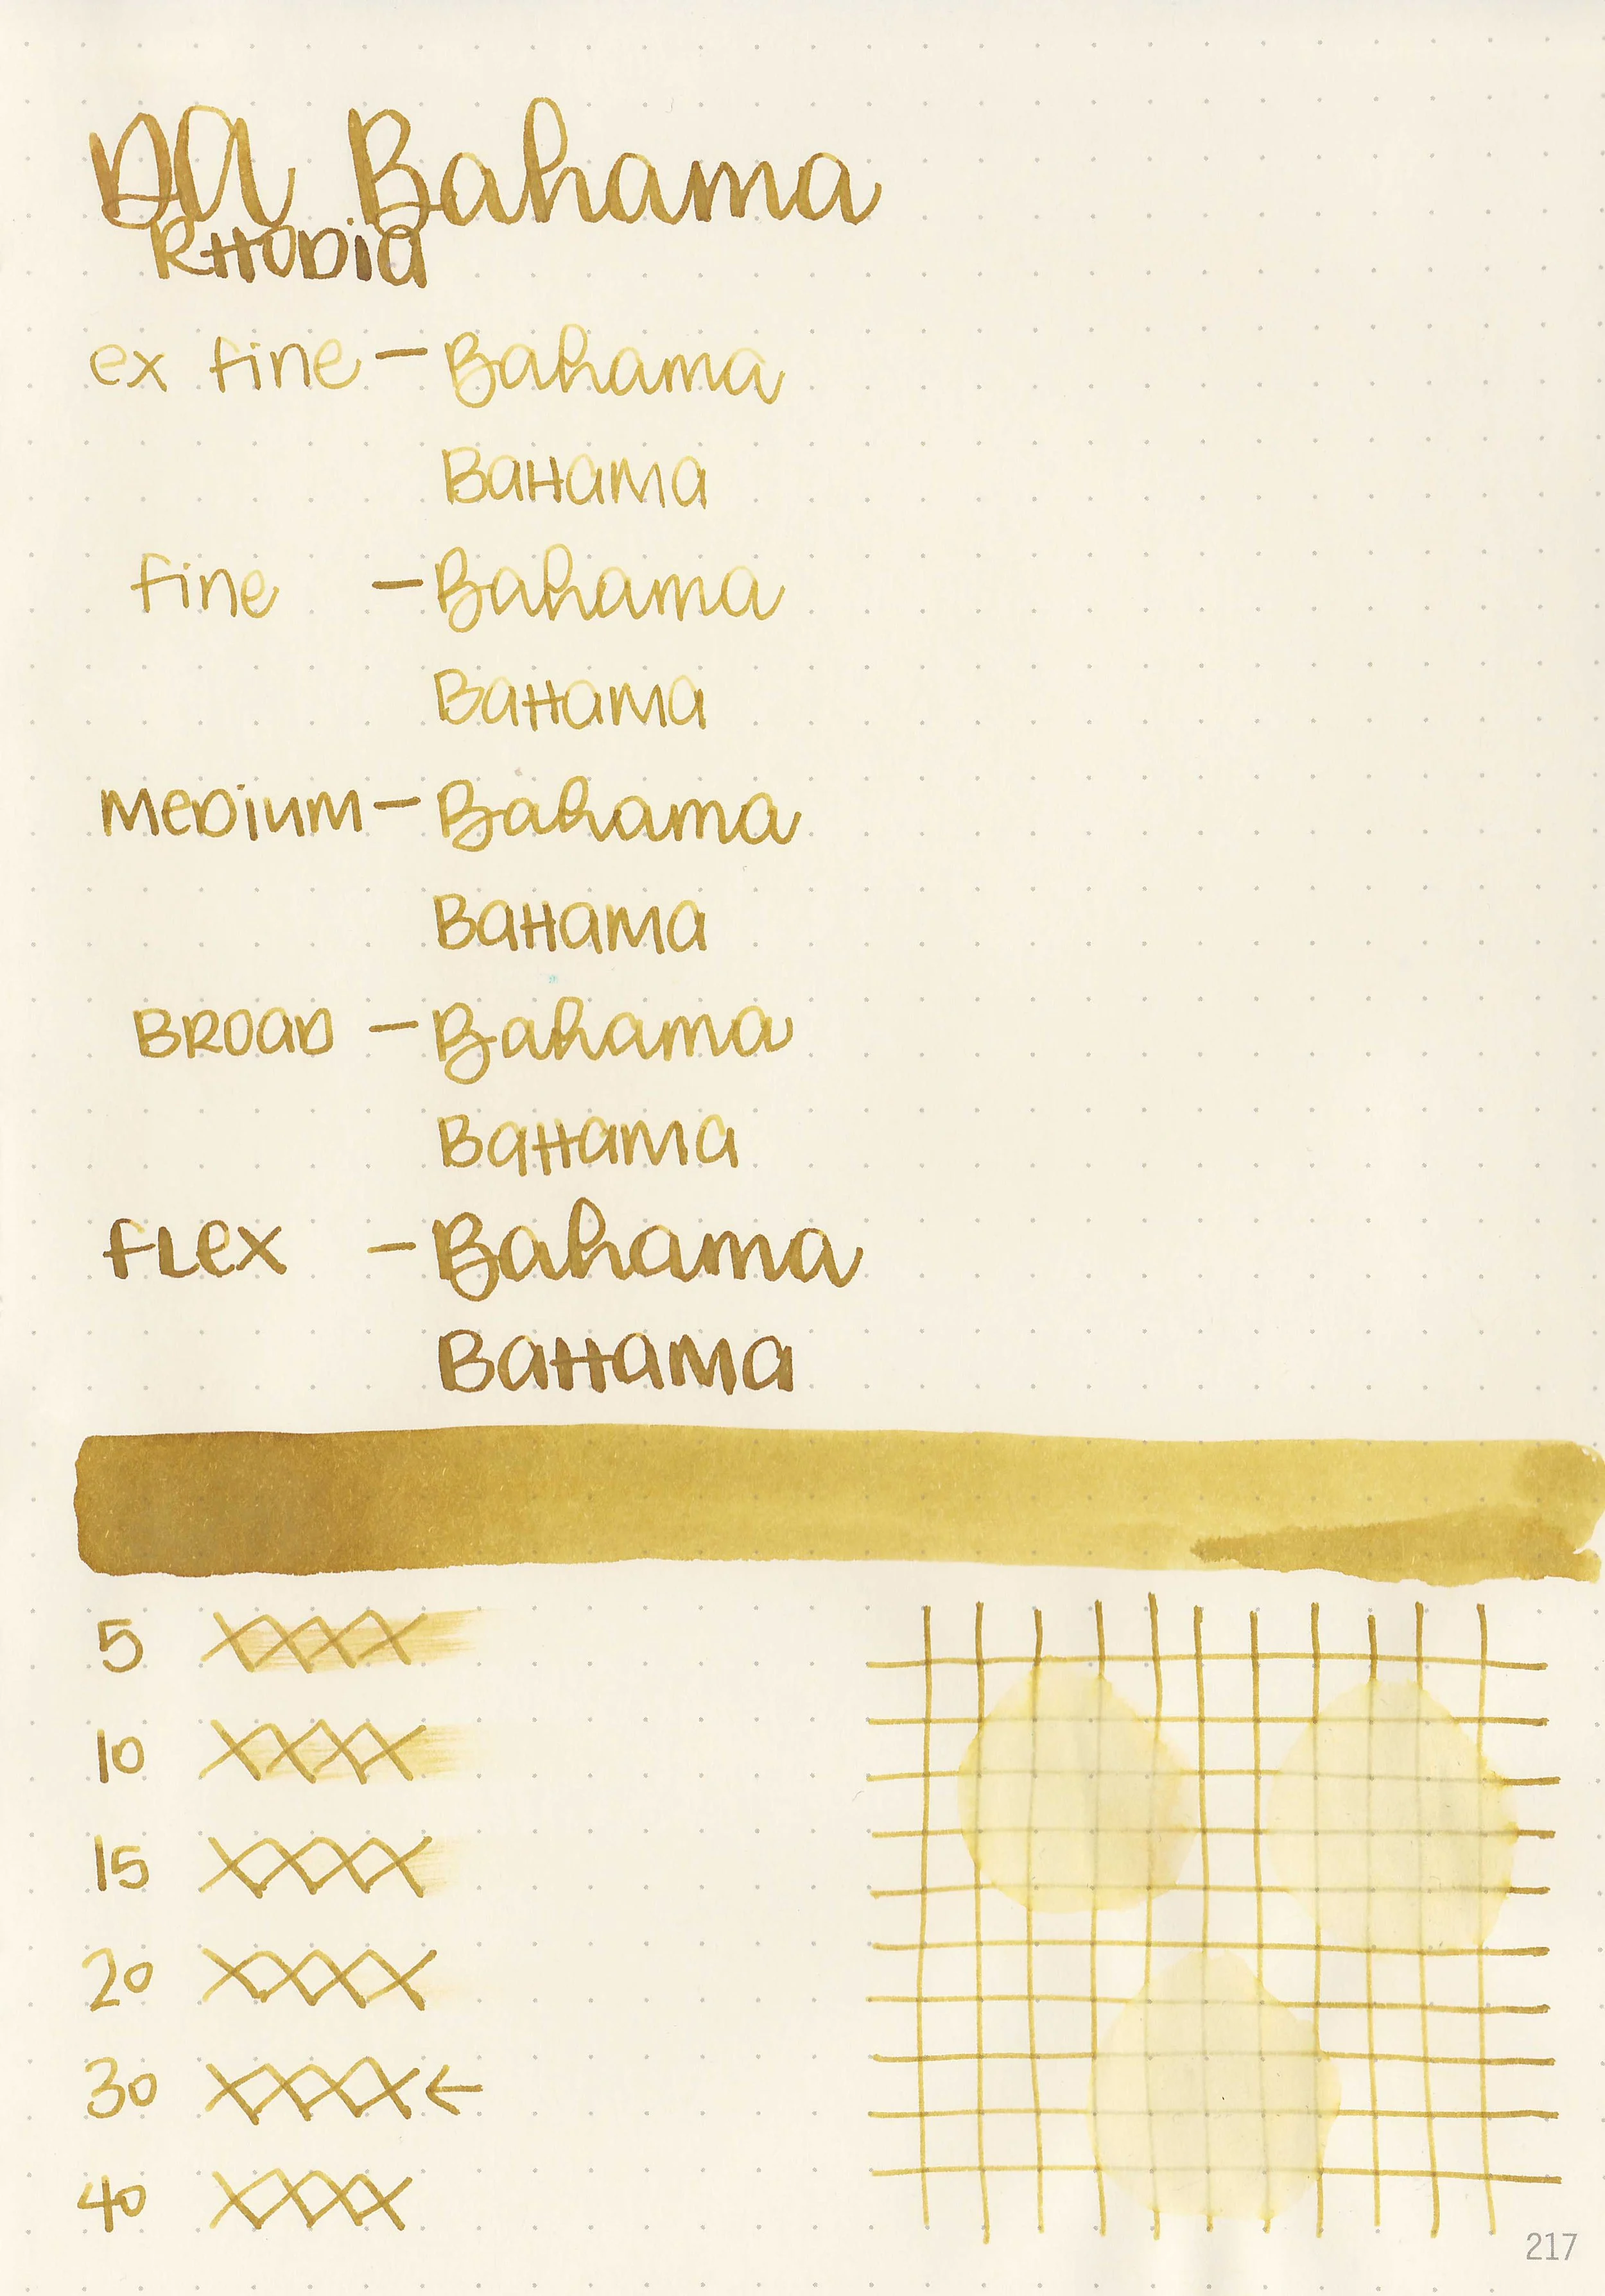 DA Bahama
RHODIA
ex fine - Bahama
BAHAMA
fine - Bahama
BAHAMA
MEDIUM - Bahama
BAHAMA
BROAD - Bahama
BAHAMA
FLEX - Bahama
BAHAMA
5 XXXX
10 XXXX
15 XXXX
20 XXXX
30 XXXX ←
40 XXXX
217